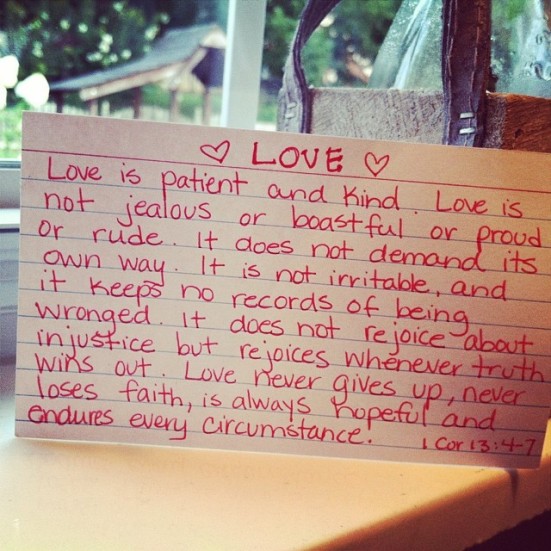 ♡ LOVE ♡
Love is patient and kind. Love is
not jealous or boastful or proud
or rude. It does not demand its
own way. It is not irritable, and
it keeps no records of being
wronged. it does not rejoice about
injustice but rejoices whenever truth
wins out. Love never gives up, never
loses faith, is always hopeful and
endures every circumstance. 1 Cor 13:4-7